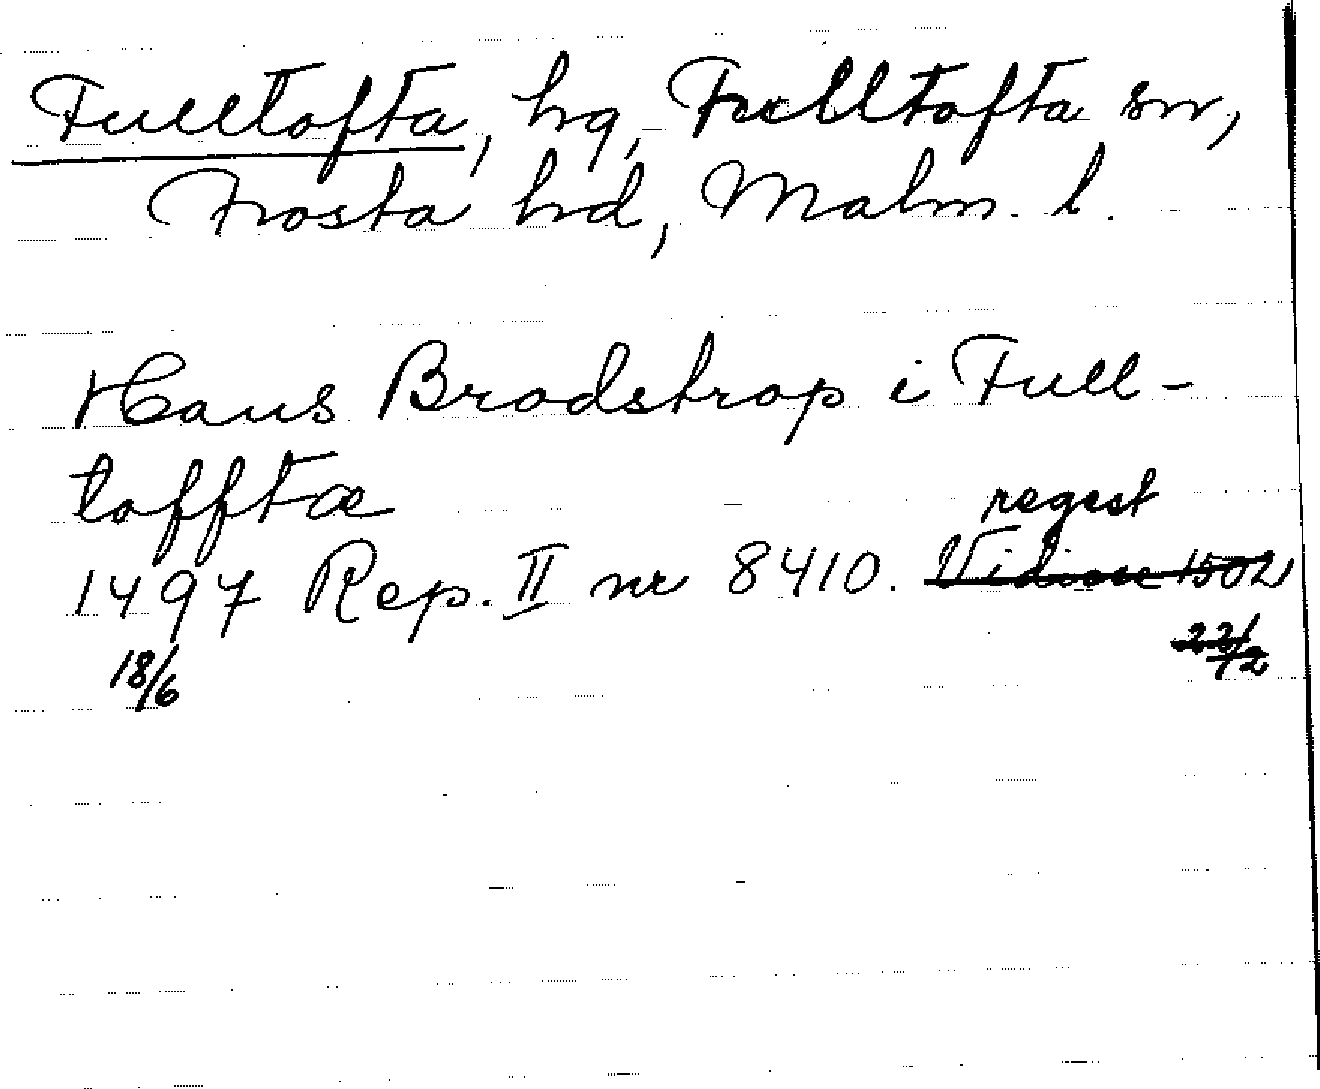 Fulltofta, hg, Fulltofta sn,
Frosta hd, Malm. l.
Hans Brodstrop i Full-
tofftæ
regest
1497 Rep. II nr 8410. Vidisse 1502
18/6 22/2